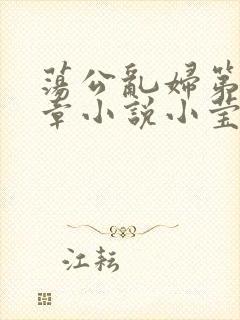 蕩公亂婦第
章小說小莹
江耘